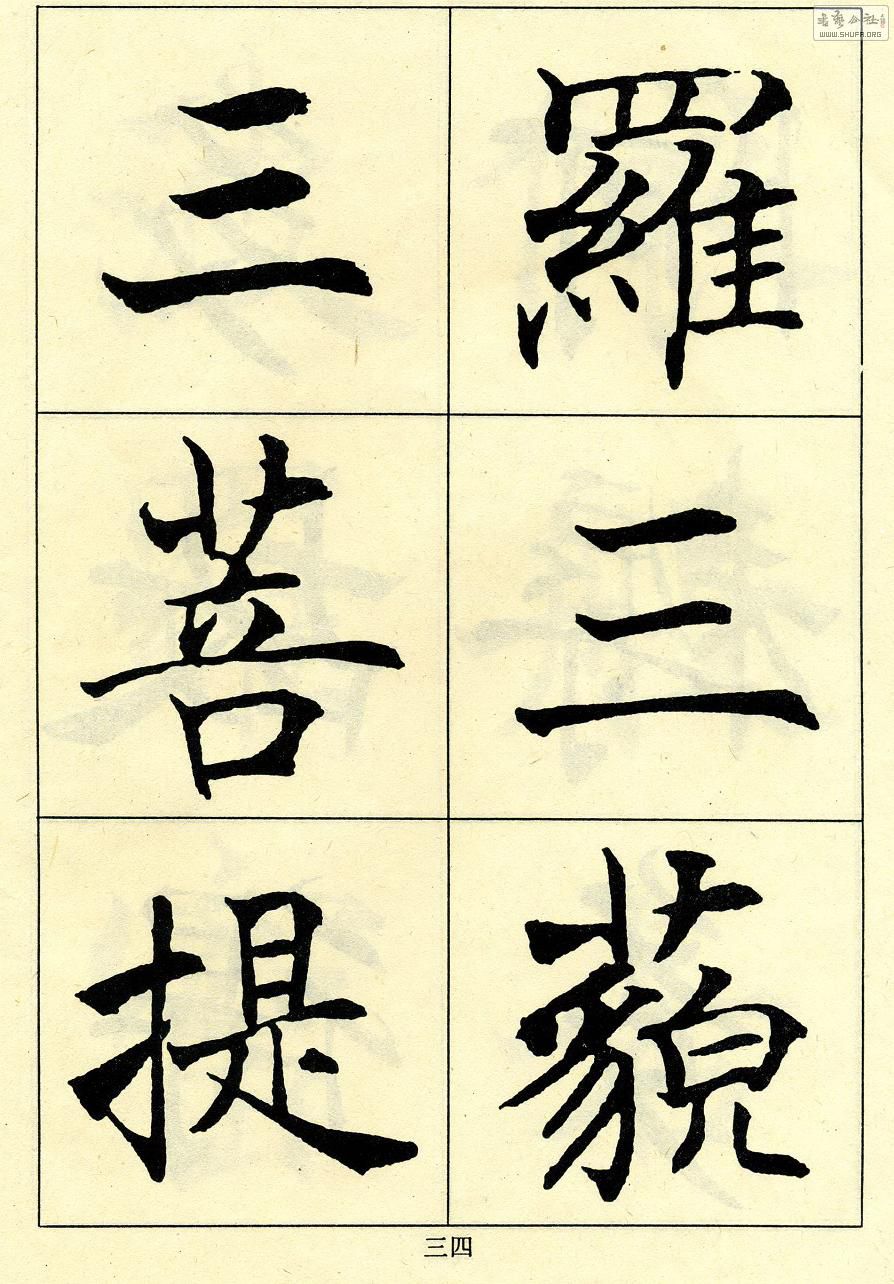 羅三藐
三菩提
三四
WWW.SHUFA.ORG